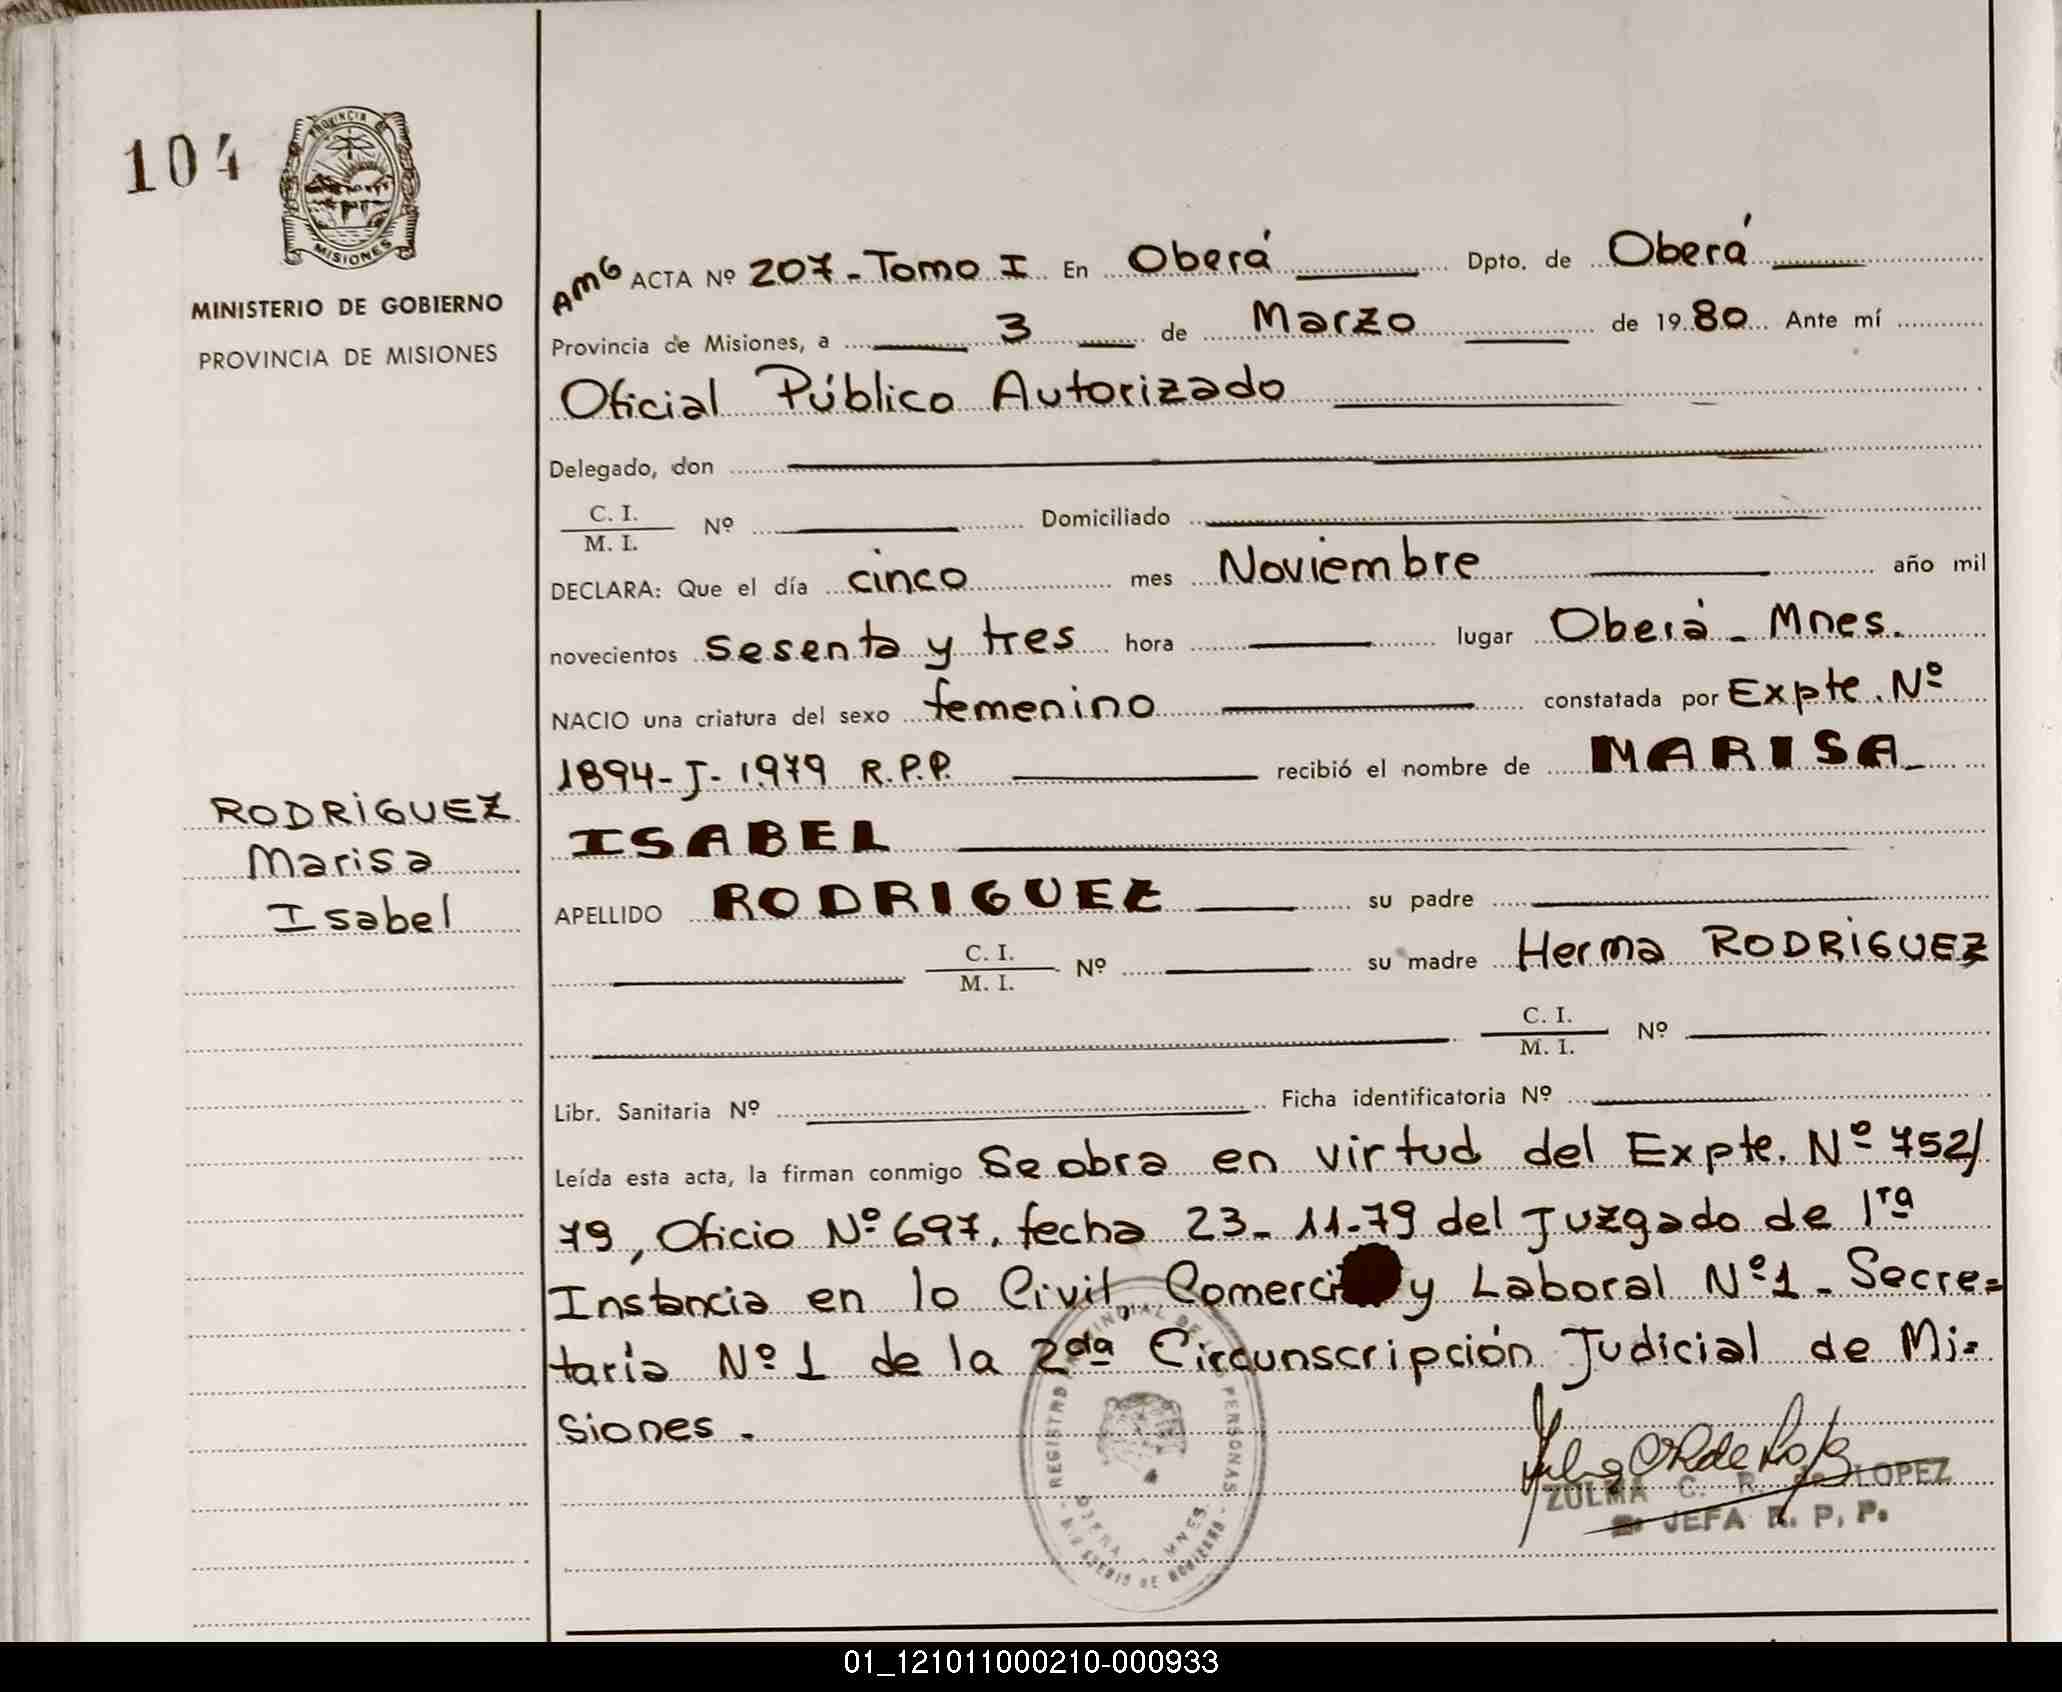 104
PROVINCIA DE
MISIONES
MINISTERIO DE GOBIERNO
PROVINCIA DE MISIONES
RODRIGUEZ
Marisa
Isabel
AMG ACTA Nº 207-Tomo I En Oberá Dpto. de Oberá
Provincia de Misiones, a 3 de Marzo de 1980 Ante mí
Oficial Público Autorizado
Delegado, don
C. I.
M. I. Nº Domiciliado
DECLARA: Que el día cinco mes Noviembre año mil
novecientos sesenta y tres hora lugar Oberá - Mnes.
NACIO una criatura del sexo femenino constatada por Expte. Nº
1894-J-1979 R.P.P. recibió el nombre de MARISA
ISABEL
APELLIDO RODRIGUEZ su padre
C. I.
M. I. Nº su madre Herma RODRIGUEZ
C. I.
M. I. Nº
Libr. Sanitaria Nº Ficha identificatoria Nº
Leída esta acta, la firman conmigo Se obra en virtud del Expte. Nº 752/
79, Oficio Nº 697, fecha 23-11-79 del Juzgado de 1ra
Instancia en lo Civil, Comerci y Laboral Nº 1 - Secre=
taria Nº 1 de la 2da Circunscripción Judicial de Mi=
siones.-
REGISTRO PROVINCIAL DE LAS PERSONAS
OBERA - MNES.
MINISTERIO DE GOBIERNO
ZULMA C. R. de LOPEZ
JEFA R. P. P.
01_121011000210-000933